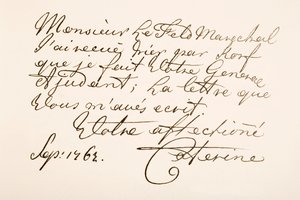 Monsieur Le Feld Marechal
J'ai recue hier par Korf
que je fait Votre General
Ajudant; La lettre que
Vous m'avé ecrit
Votre affectioñé
Sep: 1762. Caterine